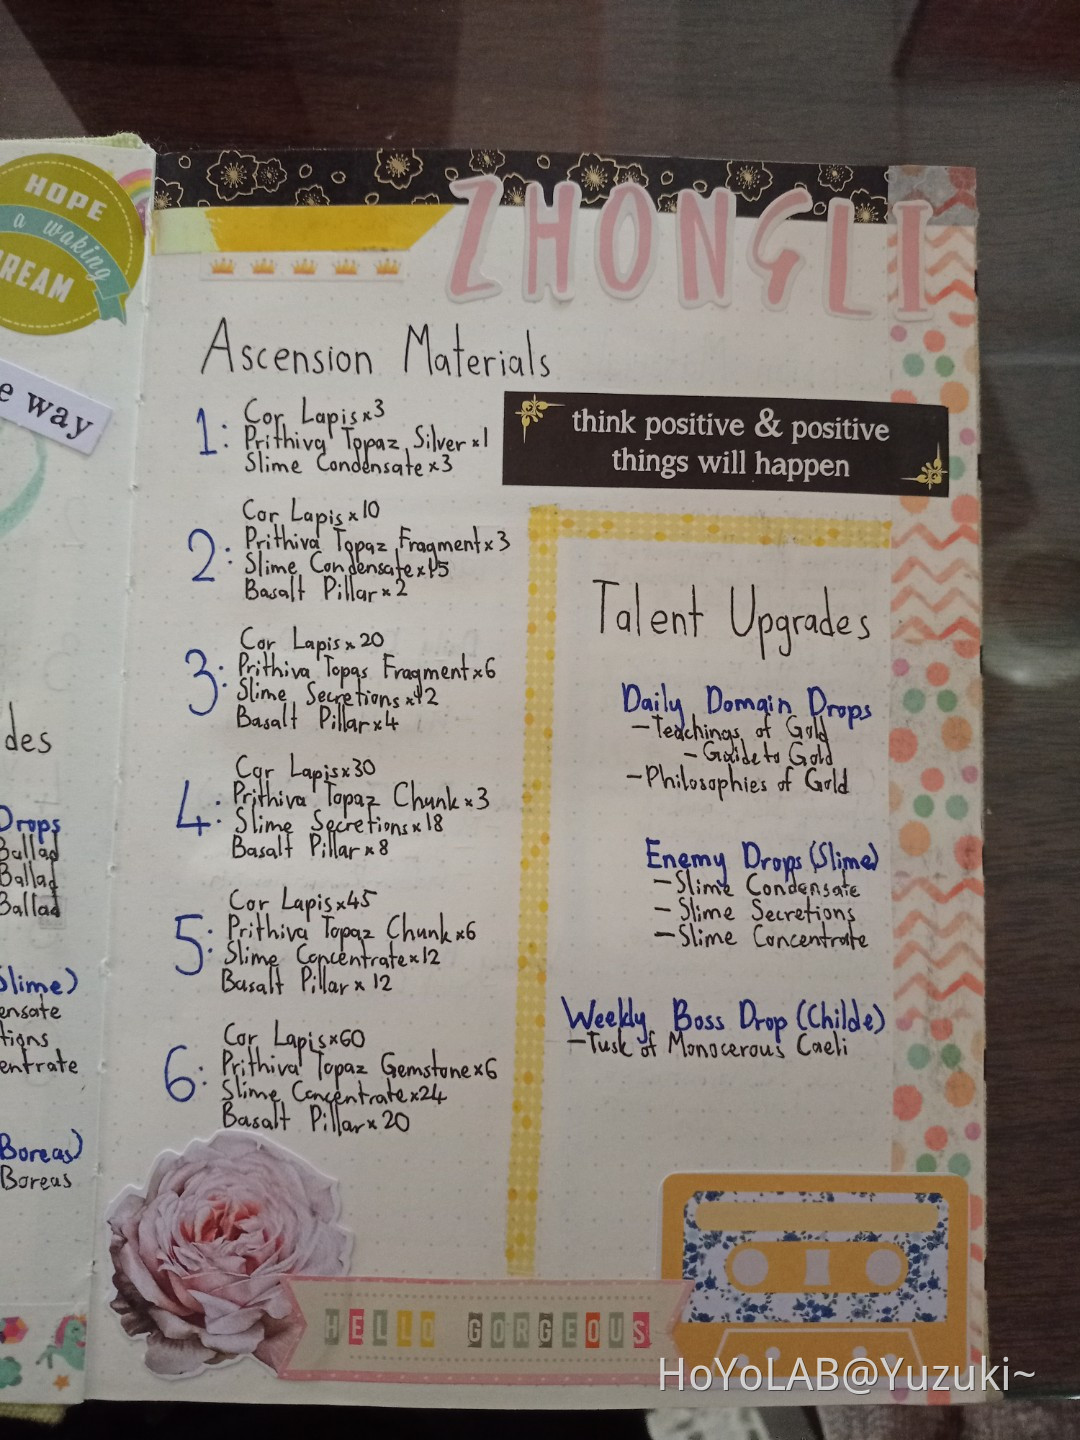 HOPE
a waking
DREAM
e way
des
Drops
Ballad
Ballad
Ballad
Slime)
ensate
tions
entrate
Boreas)
Boreas
ZHONGLI
Ascension Materials
1:
Cor Lapis x3
Prithiva Topaz Silver x1
Slime Condensate x3
2:
Cor Lapis x 10
Prithiva Topaz Fragment x 3
Slime Condensate x 15
Basalt Pillar x 2
3:
Cor Lapis x 20
Prithiva Topas Fragment x 6
Slime Secretions x 12
Basalt Pillar x 4
4:
Cor Lapis x 30
Prithiva Topaz Chunk x 3
Slime Secretions x 18
Basalt Pillar x 8
5:
Cor Lapis x45
Prithiva Topaz Chunk x6
Slime Concentrate x 12
Basalt Pillar x 12
6:
Cor Lapis x60
Prithiva Topaz Gemstone x 6
Slime Concentrate x24
Basalt Pillar x 20
think positive & positive
things will happen
Talent Upgrades
Daily Domain Drops
- Teachings of Gold
- Guide to Gold
- Philosophies of Gold
Enemy Drops (Slime)
- Slime Condensate
- Slime Secretions
- Slime Concentrate
Weekly Boss Drop (Childe)
- Tusk of Monocerous Caeli
HELLO GORGEOUS
HoYoLAB@Yuzuki~